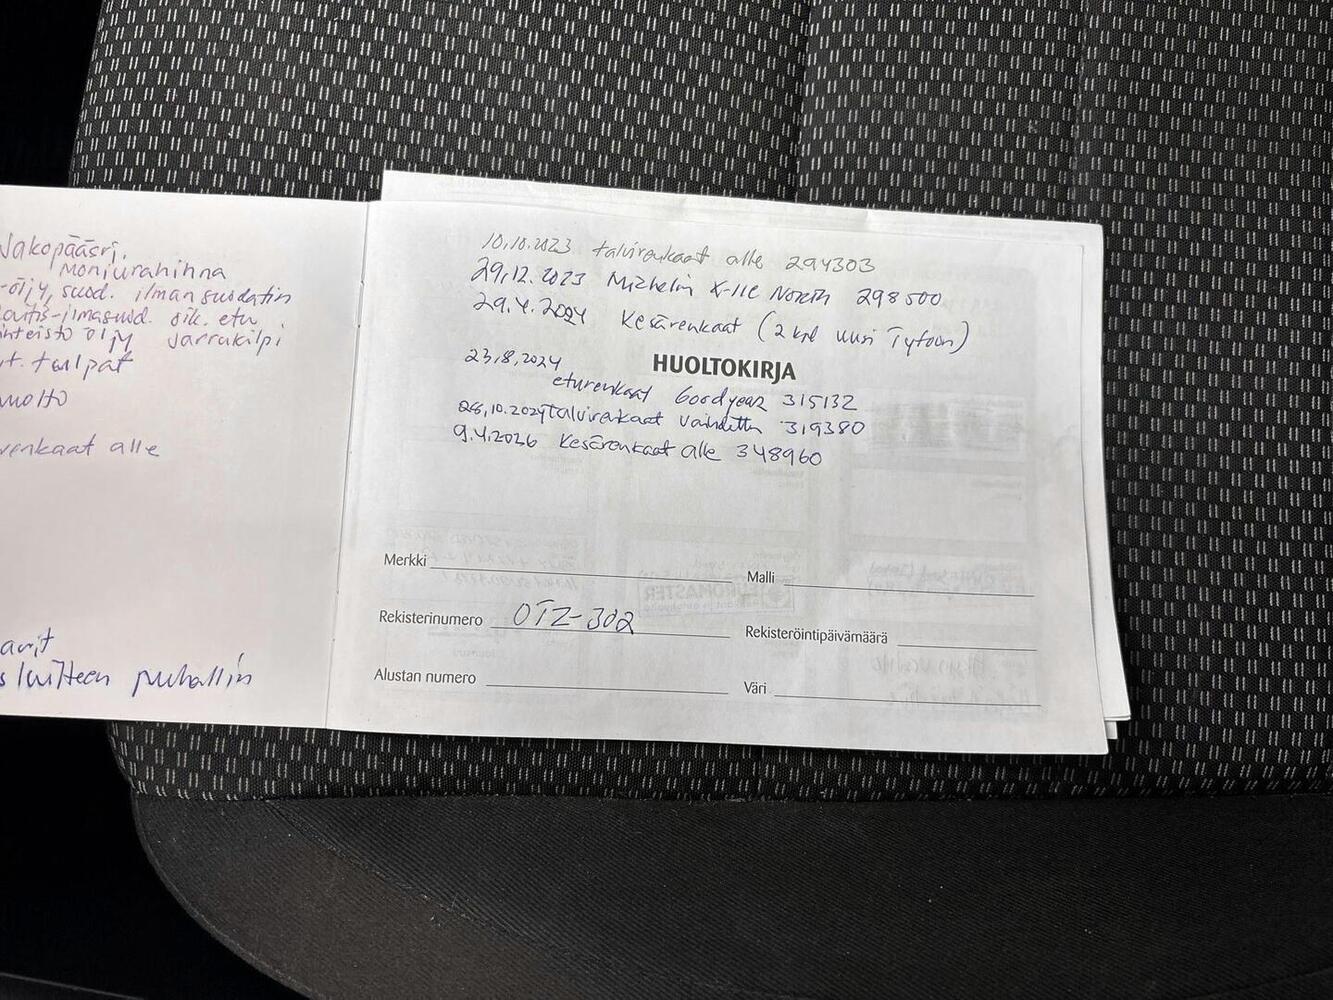 Jakopääsrj.
Moniurahihna
-öljy, suod. ilmansuodatin
-ilmasuod. oik. etu
öljy Jarrukilpi
tulpat
huolto
renkaat alle
puhallin
10.10.2023 talvirenkaat alle 294303
29.12.2023 Michelin X-ICE North 298500
29.4.2024 Kesärenkaat (2 kpl uusi Tyfoon)
HUOLTOKIRJA
23.8.2024
eturenkaat Goodyear 315132
28.10.2024 talvirenkaat vaihdettu 319380
9.4.2026 Kesärenkaat alle 348960
Merkki
Malli
Rekisterinumero OTZ-302
Rekisteröintipäivämäärä
Alustan numero
Väri